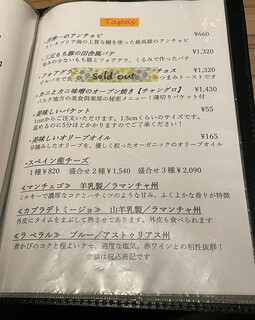 Tapas
・世界一のアンチョビ ¥660
カンタブリア海の上質な鰯を使った最高級のアンチョビ
・三元もち豚の田舎風パテ ¥1,320
臭みの少ないもち豚とフォアグラ、くるみで作ったパテ
・フォアグラ チョス ¥1,320
Sold out
つまみトーストです
・カニとカニ味噌のオーブン焼き【チャングロ】 ¥1,430
バスク地方の美食倶楽部の秘密メニュー!薄切りバケット付
・美味しいバケット ¥55
1cutからご注文いただけます。1.5cmくらいのサイズです。
温めるのに5分ほどかかりますのでご了承ください!
・美味しいオリーブオイル ¥165
早摘みしたオリーブを、優しく絞ったオーガニックのオリーブオイル
・スペイン産チーズ
1種¥820 盛合せ2種¥1,540 盛合せ3種¥2,090
≪マンチェゴ≫ 羊乳製/ラマンチャ州
ミルキーで濃厚なコクとハチミツのような甘み、ふくよかな香りが特徴
≪カブラデトミージョ≫ 山羊乳製/ラマンチャ州
外皮にタイムをまぶして熟させてあります。外皮も食べられます
≪ラ ペラル≫ ブルー/アストゥリアス州
青かびのコクと程よいクセ、適度な塩気。赤ワインとの相性抜群!
金額は税込表記です